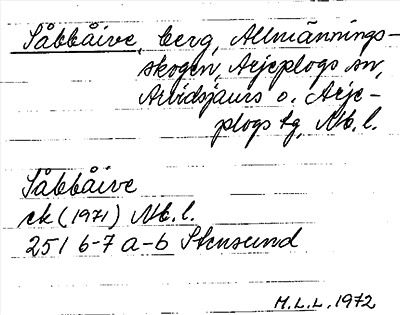 Såbbåive, berg, Allmännings-
skogen, Arjeplogs sn,
Arvidsjaurs o. Arje-
plogs tg, Nb. l.
Såbbåive
ek (1971) Nb. l.
25 I 6-7 a-b Stensund
M.L.L. 1972